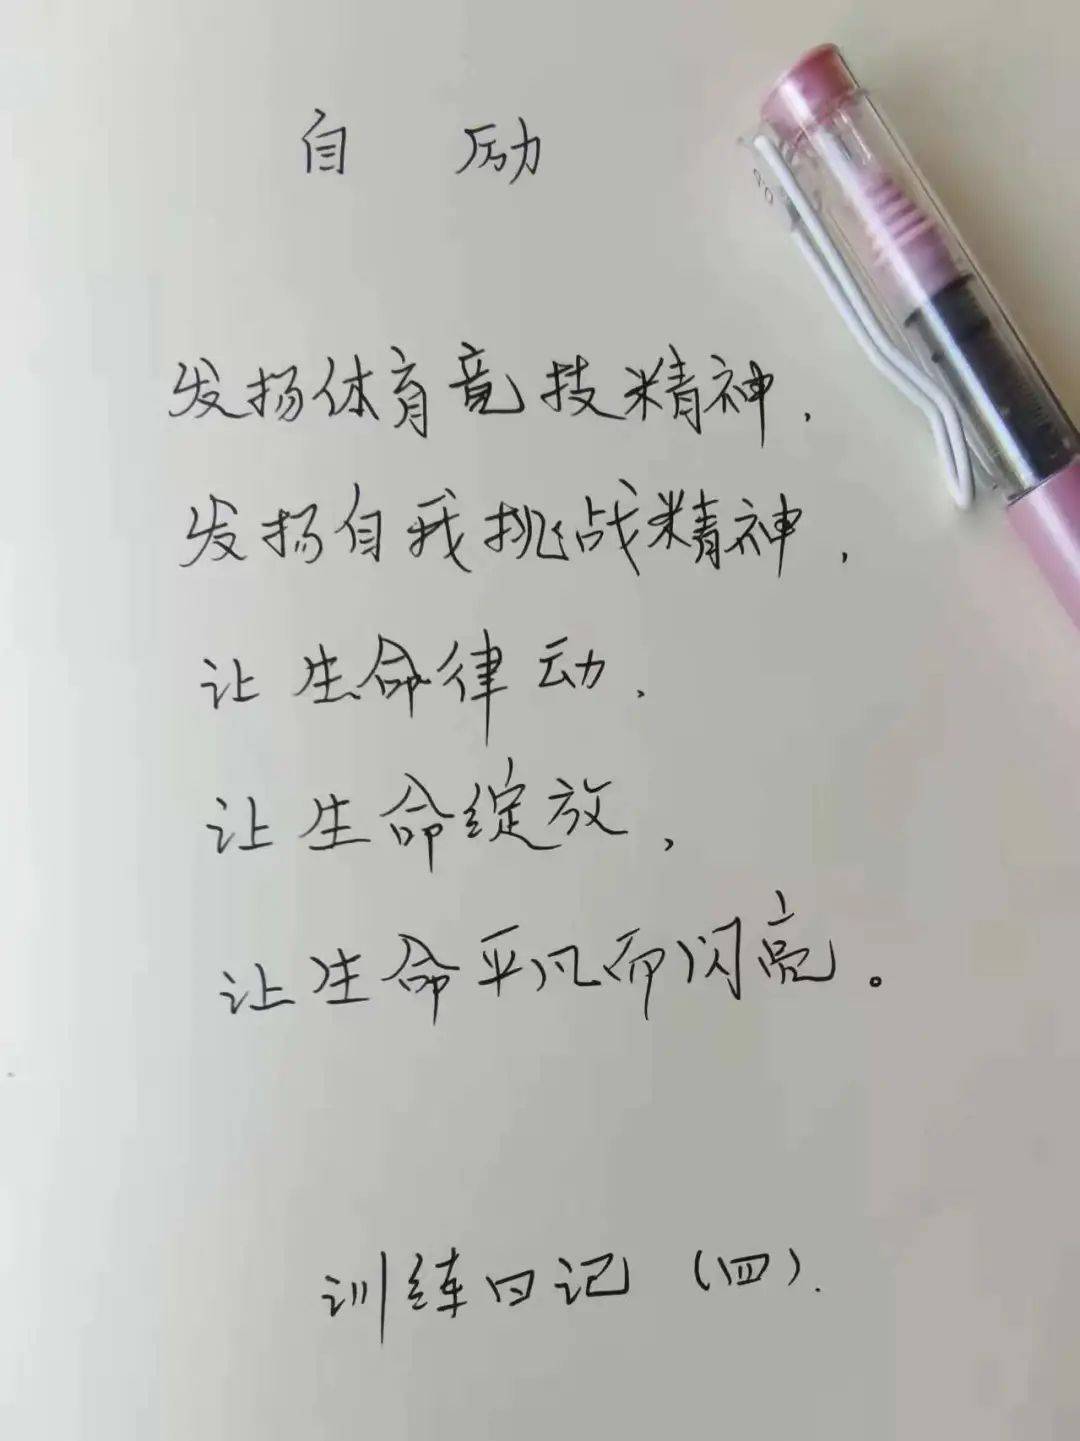 自 励
发扬体育竞技精神,
发扬自我挑战精神,
让生命律动,
让生命绽放,
让生命平凡而闪亮。
训练日记(四).